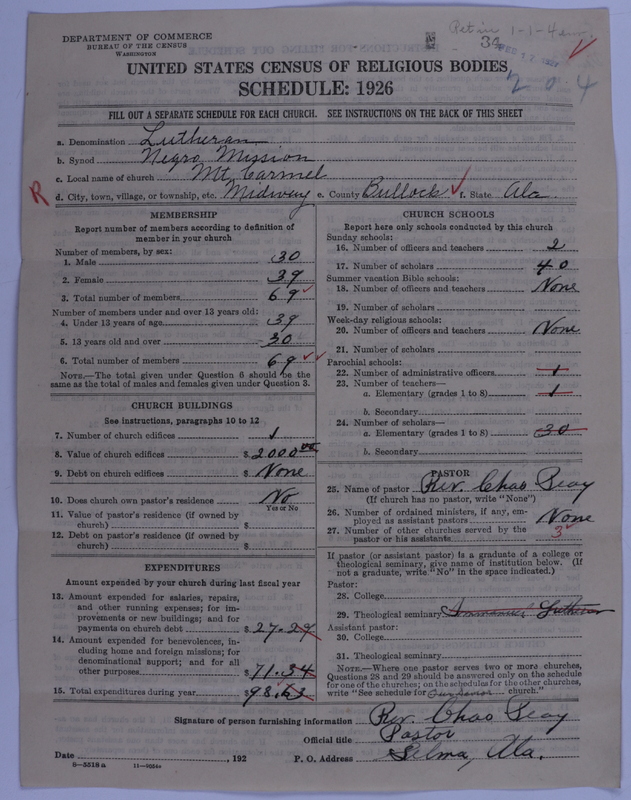 DEPARTMENT OF COMMERCE
BUREAU OF THE CENSUS
WASHINGTON
34
DEC 12 1927
204
UNITED STATES CENSUS OF RELIGIOUS BODIES
SCHEDULE: 1926
FILL OUT A SEPARATE SCHEDULE FOR EACH CHURCH. SEE INSTRUCTIONS ON THE BACK OF THIS SHEET
a. Denomination Lutheran
b. Synod Negro Mission
c. Local name of church Mt. Carmel
R d. City, town, village, or township, etc. Midway e. County Bullock f. State Ala.
MEMBERSHIP
Report number of members according to definition of
member in your church
Number of members, by sex:
1. Male 30
2. Female 39
3. Total number of members 69
Number of members under and over 13 years old:
4. Under 13 years of age 39
5. 13 years old and over 30
6. Total number of members 69
NOTE.—The total given under Question 6 should be the
same as the total of males and females given under Question 3.
CHURCH BUILDINGS
See instructions, paragraphs 10 to 12
7. Number of church edifices 1
8. Value of church edifices $ 2000 00
9. Debt on church edifices $ None
10. Does church own pastor's residence No
Yes or No
11. Value of pastor's residence (if owned by
church) $
12. Debt on pastor's residence (if owned by
church) $
EXPENDITURES
Amount expended by your church during last fiscal year
13. Amount expended for salaries, repairs,
and other running expenses; for im-
provements or new buildings; and for
payments on church debt $ 27.29
14. Amount expended for benevolences, in-
cluding home and foreign missions; for
denominational support; and for all
other purposes $ 71.34
15. Total expenditures during year $ 98.63
CHURCH SCHOOLS
Report here only schools conducted by this church
Sunday schools:
16. Number of officers and teachers 2
17. Number of scholars 40
Summer vacation Bible schools:
18. Number of officers and teachers None
19. Number of scholars
Week-day religious schools:
20. Number of officers and teachers None
21. Number of scholars
Parochial schools:
22. Number of administrative officers 1
23. Number of teachers—
a. Elementary (grades 1 to 8) 1
b. Secondary
24. Number of scholars—
a. Elementary (grades 1 to 8) 30
b. Secondary
PASTOR
25. Name of pastor Rev. Chas Peay
(If church has no pastor, write "None")
26. Number of ordained ministers, if any, em-
ployed as assistant pastors None
27. Number of other churches served by the
pastor or his assistants 3
If pastor (or assistant pastor) is a graduate of a college or
theological seminary, give name of institution below. (If
not a graduate, write "No" in the space indicated.)
Pastor:
28. College
29. Theological seminary Immanuel Lutheran
Assistant pastor:
30. College
31. Theological seminary
NOTE.—Where one pastor serves two or more churches,
Questions 28 and 29 should be answered only on the schedule
for one of the churches; on the schedules for the other churches,
write "See schedule for Our Savior church."
Signature of person furnishing information Rev. Chas Peay
Official title Pastor
Date , 192 P. O. Address Selma, Ala.
8—5518 a 11—9564a